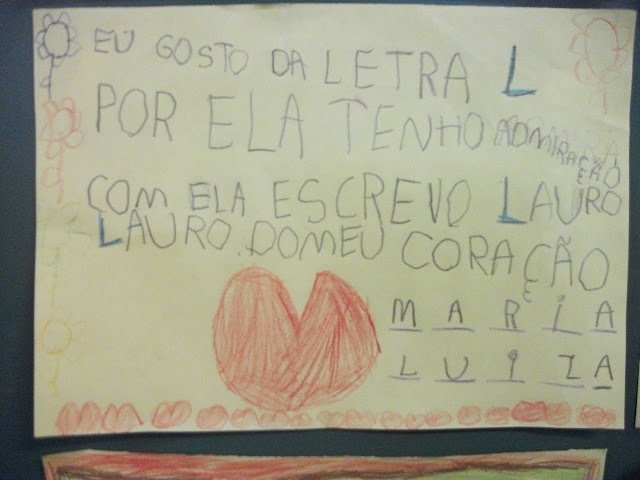 EU GOSTO DA LETRA L
POR ELA TENHO ADMIRAÇÃO
COM ELA ESCREVO LAURO
LAURO DO MEU CORAÇÃO
MARIA
LUIZA